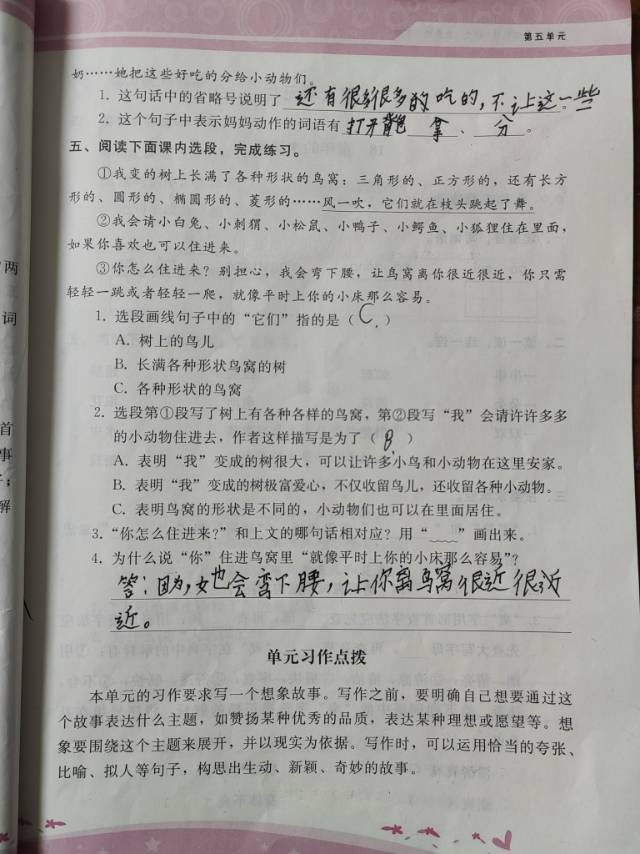 第五单元
奶……她把这些好吃的分给小动物们。
1. 这句话中的省略号说明了 还有很多很多的吃的,不让这一些。
2. 这个句子中表示妈妈动作的词语有 打开背包、拿、分。
五、阅读下面课内选段，完成练习。
①我变的树上长满了各种形状的鸟窝：三角形的、正方形的，还有长方
形的、圆形的、椭圆形的、菱形的……风一吹，它们就在枝头跳起了舞。
②我会请小白兔、小刺猬、小松鼠、小鸭子、小鳄鱼、小狐狸住在里面，
如果你喜欢也可以住进来。
③你怎么住进来？别担心，我会弯下腰，让鸟窝离你很近很近，你只需
轻轻一跳或者轻轻一爬，就像平时上你的小床那么容易。
1. 选段画线句子中的“它们”指的是（ C. ）
A. 树上的鸟儿
B. 长满各种形状鸟窝的树
C. 各种形状的鸟窝
2. 选段第①段写了树上有各种各样的鸟窝，第②段写“我”会请许许多多
的小动物住进去，作者这样描写是为了（ B ）
A. 表明“我”变成的树很大，可以让许多小鸟和小动物在这里安家。
B. 表明“我”变成的树极富爱心，不仅收留鸟儿，还收留各种小动物。
C. 表明鸟窝的形状是不同的，小动物们也可以在里面居住。
3. “你怎么住进来?”和上文的哪句话相对应？用“﹏﹏”画出来。
4. 为什么说“你”住进鸟窝里“就像平时上你的小床那么容易”？
答：因为,她会弯下腰，让你离鸟窝很近很近
近。
单元习作点拨
本单元的习作要求写一个想象故事。写作之前，要明确自己想要通过这
个故事表达什么主题，如赞扬某种优秀的品质，表达某种理想或愿望等。想
象要围绕这个主题来展开，并以现实为依据。写作时，可以运用恰当的夸张、
比喻、拟人等句子，构思出生动、新颖、奇妙的故事。
两
词
首
事
解